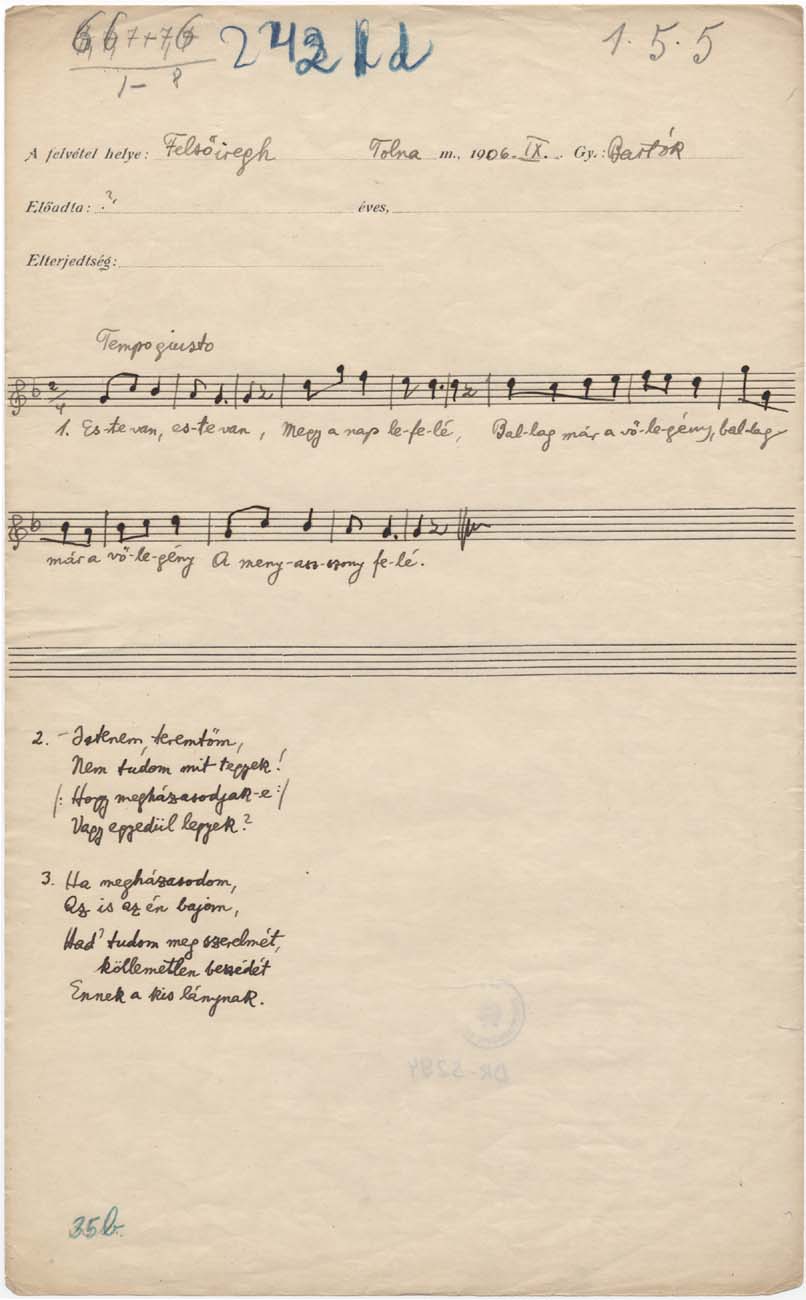 1.5.5
A felvétel helye: Felsőiregh Tolna m., 1906. IX. Gy.: Bartók
Előadta: ? éves,
Elterjedtség:
Tempo giusto
2/4
1. Es-te van, es-te van, Megy a nap le-fe-lé, Bal-lag már a vő-le-gény, bal-lag
már a vő-le-gény A meny-asz-szony fe-lé.
2. - Istenem, teremtőm,
Nem tudom mit tegyek!
/: Hogy megházasodjak-e :/
Vagy egyedül legyek?
3. Ha megházasodom,
Az is az én bajom,
Had' tudom meg szerelmét,
köllemetlen beszédét
Ennek a kis lánynak.
DR-5294
35b.